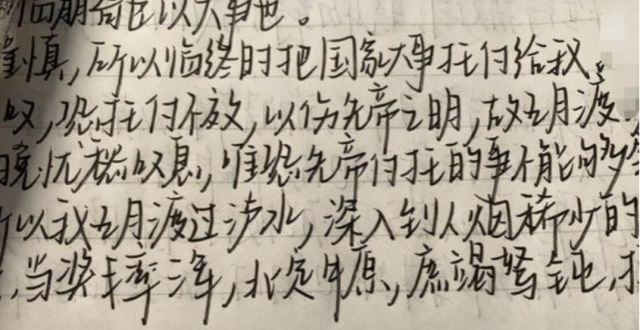 临崩寄臣以大事也。
谨慎,所以临终时把国家大事托付给我。
叹,恐托付不效,以伤先帝之明,故五月渡
晚忧愁叹息,唯恐先帝付托的事不能够
以我五月渡过泸水,深入到人烟稀少的
,当奖率三军,北定中原,庶竭驽钝,